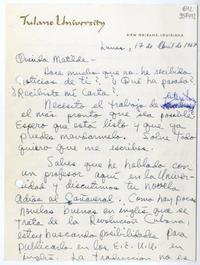 Tulane University
NEW ORLEANS, LOUISIANA
Lunes, 17 de Abril de 1967
Querida Matilde-
Hace mucho que no he recibido
noticias de ti? ¿Qué ha pasado?
¿Recibiste mi carta?
Necesito el trabajo de
el más pronto que sea posible
Espero que esté listo y que ya
puedes mandarmelo. Sobre todo
quiero que me escribas.
Sabes que he hablado con
un profesor aquí en la Univer-
sidad y discutimos tu novela
Adiós al Cañaveral. Como hay pocas
novelas buenas en inglés que se
trata de la Revolución Cubana,
estoy buscando posibilidades para
publicarlo en los E.E.U.U. en
inglés. La traducción no es